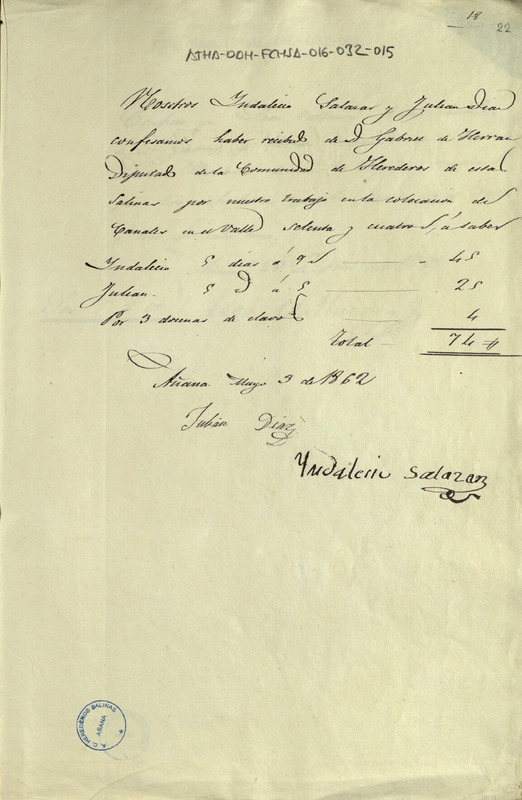 18
22
ATHA-DAH-FCHSA-016-032-015
Nosotros Yndalecio Salazar y Julian Diaz
confesamos haber recibido de D Gabriel de Herran
Diputado de la Comunidad de Herederos de estas
Salinas por nuestro trabajo en la colocacion de
Canales en el Valle setenta y cuatro r.s, a saber
Yndalecio 5 dias á 9 r.s " 45
Julian 5 d á 5 25
Por 3 docenas de clavos 4
Total 74
Añana Mayo 3 de 1862
Julián Diaz
Yndalecio Salazar
A. C. HEREDEROS SALINAS
AÑANA